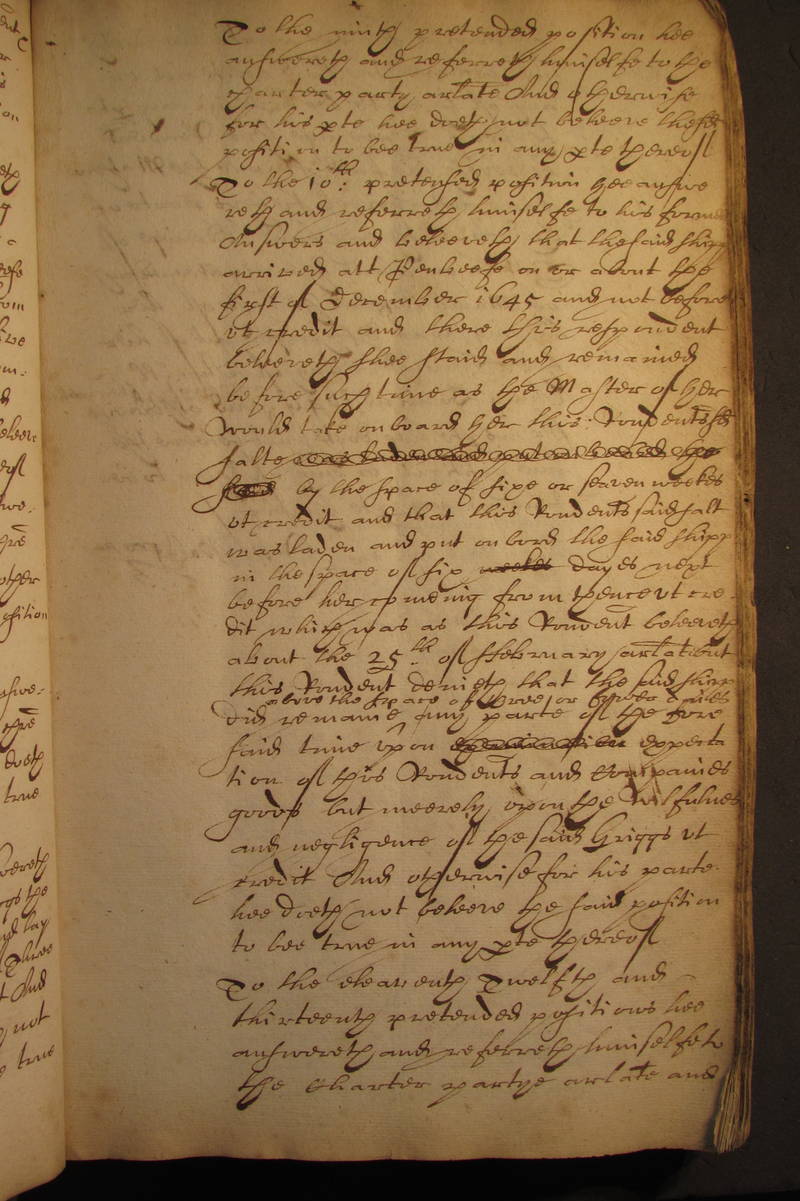 To the ninth pretended position hee
answereth and referreth himselfe to the
charter party arlate And otherwise
for his pte hee doeth not beleeve the sd
position to bee true in any pte thereof
To the 10th: pretensed position hee answe
reth and referreth himselfe to his former
Answers and beleeveth that the said shipp
arrived att on or about the
first of December 1645 and not before
ut credit and there this respondent
beleeveth shee staid and remained
before such time as the Master of her
would take on board her this Rondents sd
salte was laden and put on board the
said by the space of sixe or seaven weekes
ut credit and that this Rondents said salt
was laden and put on bord the said shipp
in the space of six weekes dayes next
before her comeing from thence ut cre-
dit which was as this Rondent beleeveth
about the 25th of ffebruary arlate but
this Rondent denieth that the said shipp
above the space of three or fower daies
did remaine any parte of the fore
said time upon expecta
tion of this Rondents and Companies
goods but meerely upon the wilfulnes
and negligence of the said Griggs ut
credit And otherwise for his parte
hee doeth not beleeve the said position
to bee true in any pte thereof
To the eleaventh Twelfth and
thirteenth pretended positions hee
answereth and referreth himselfe to
the Charter partye arlate and